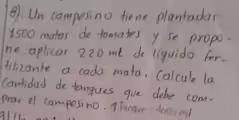 8) Un campesino tiene plantadas
1500 matas de tomates y se propo-
ne aplicar 220 ml de líquido fer-
tilizante a cada mata. Calcule la
Cantidad de tanques que debe com-
prar el campesino. 1 Tanque